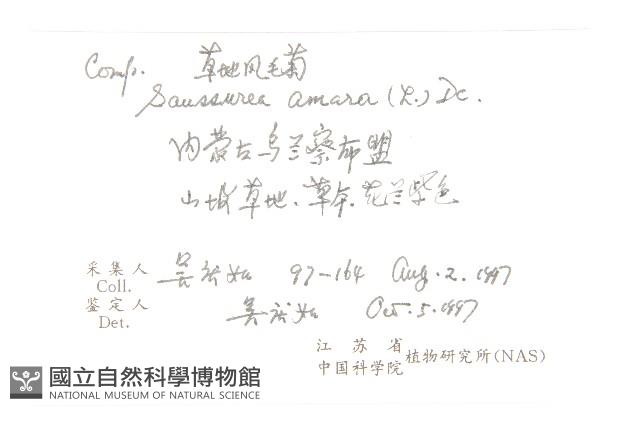 Comp. 草地风毛菊
Saussurea amara (L.) DC.
内蒙古乌兰察布盟
山坡草地、草本.花兰紫色
采集人 97-164 Aug. 2. 1997
Coll.
鉴定人 Oct. 5. 1997
Det.
江苏省
中国科学院 植物研究所(NAS)
國立自然科學博物館
NATIONAL MUSEUM OF NATURAL SCIENCE